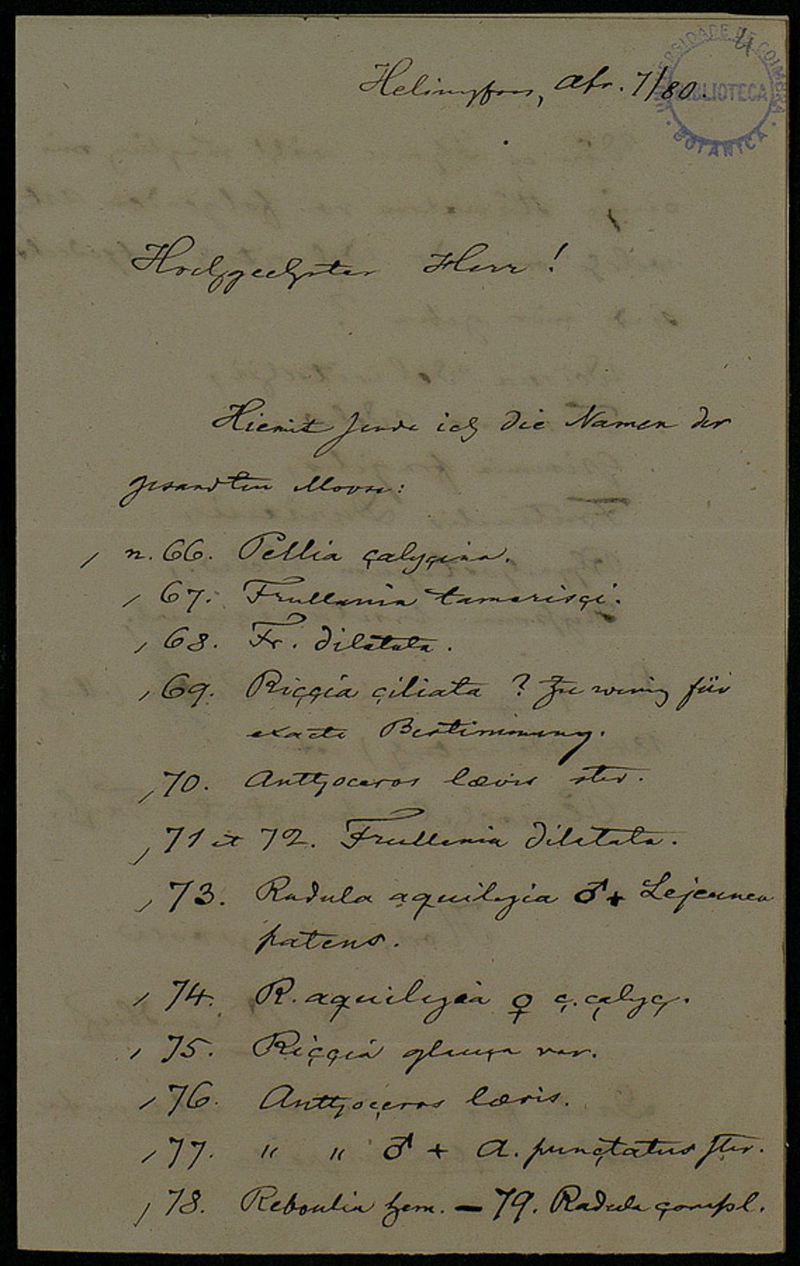 Helsingfors, Apr. 7/80.
UNIVERSIDADE DE COIMBRA
BIBLIOTECA
BOTANICA
Hochgeehrter Herr!
Hiemit sende ich die Namen der
gesandten Moose:
n. 66. Pellia calycina.
67. Frullania tamarisci.
68. Fr. dilatata.
69. Riccia ciliata? Zu wenig für
exacte Bestimmung.
70. Anthoceros lævis ster.
71 et 72. Frullania dilatata.
73. Radula aquilegia ♂ + Lejeunea
patens.
74. R. aquilegia ♀ c. calyc.
75. Riccia glauca var.
76. Anthoceros lævis.
77. " " ♂ + A. punctatus ster.
78. Reboulia hem. — 79. Radula compl.